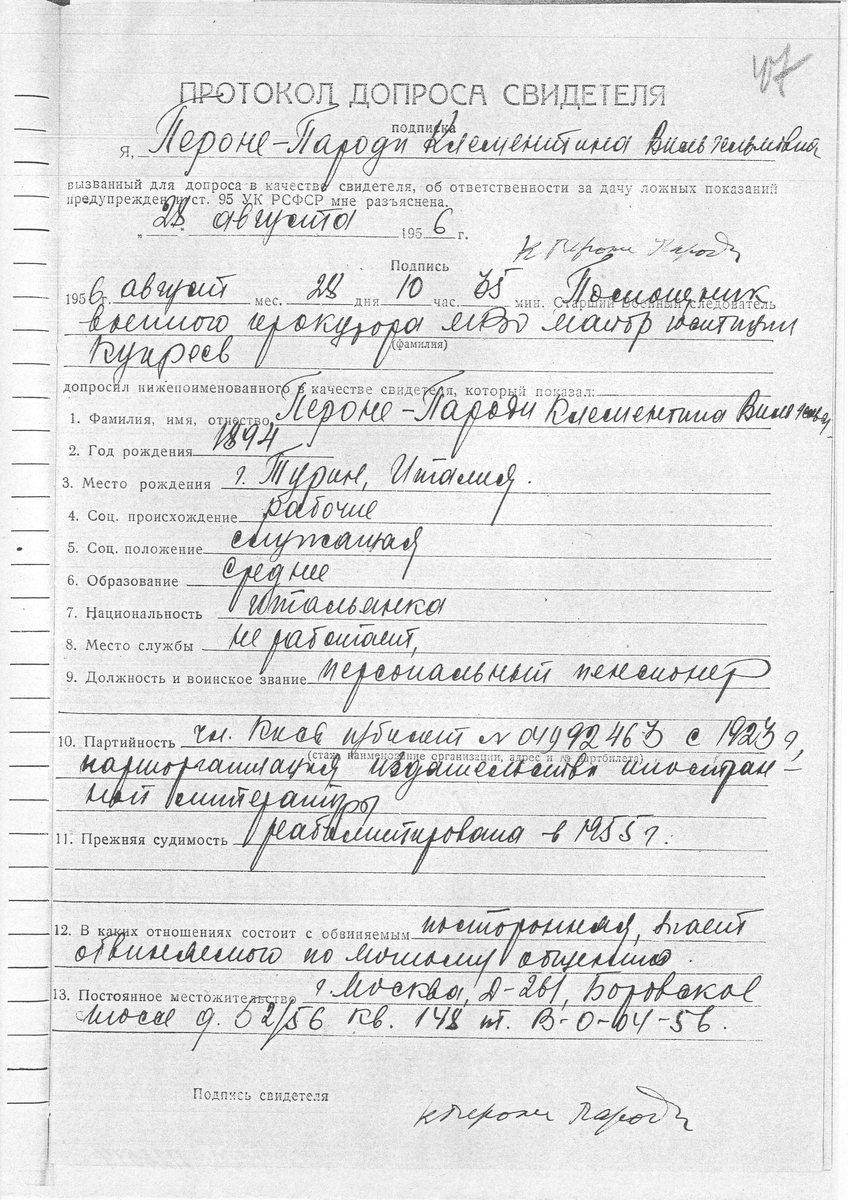 47
ПРОТОКОЛ ДОПРОСА СВИДЕТЕЛЯ
подписка
Я, Пероне-Пароди Клементина Вильгельмовна
вызванный для допроса в качестве свидетеля, об ответственности за дачу ложных показаний
предупрежден и ст. 95 УК РСФСР мне разъяснена.
„28" августа 1956 г.
К Пероне Пароди
Подпись
1956 г. август мес. 28 дня 10 час. 35 мин. Старший Военный следователь Помощник
военного прокурора МВО майор юстиции
(фамилия)
Купреев
допросил нижепоименованного в качестве свидетеля, который показал:
1. Фамилия, имя, отчество Пероне-Пароди Клементина Вильгельм.
2. Год рождения 1894
3. Место рождения г. Турин, Италия.
4. Соц. происхождение рабочие
5. Соц. положение служащая
6. Образование среднее
7. Национальность итальянка
8. Место службы не работает,
9. Должность и воинское звание персональный пенсионер
10. Партийность чл. КПСС п/билет № 04992463 с 1923 г,
(стаж, наименование организации, адрес и № партбилета)
парторганизация издательства иностран-
ной литературы
11. Прежняя судимость реабилитирована в 1955 г.
12. В каких отношениях состоит с обвиняемым посторонняя, знает
обвиняемого по общению.
13. Постоянное местожительство г. Москва, Д-261, Боровское
шоссе д. 52/56 кв. 148 т. В-0-04-56.
Подпись свидетеля
К Пероне Пароди